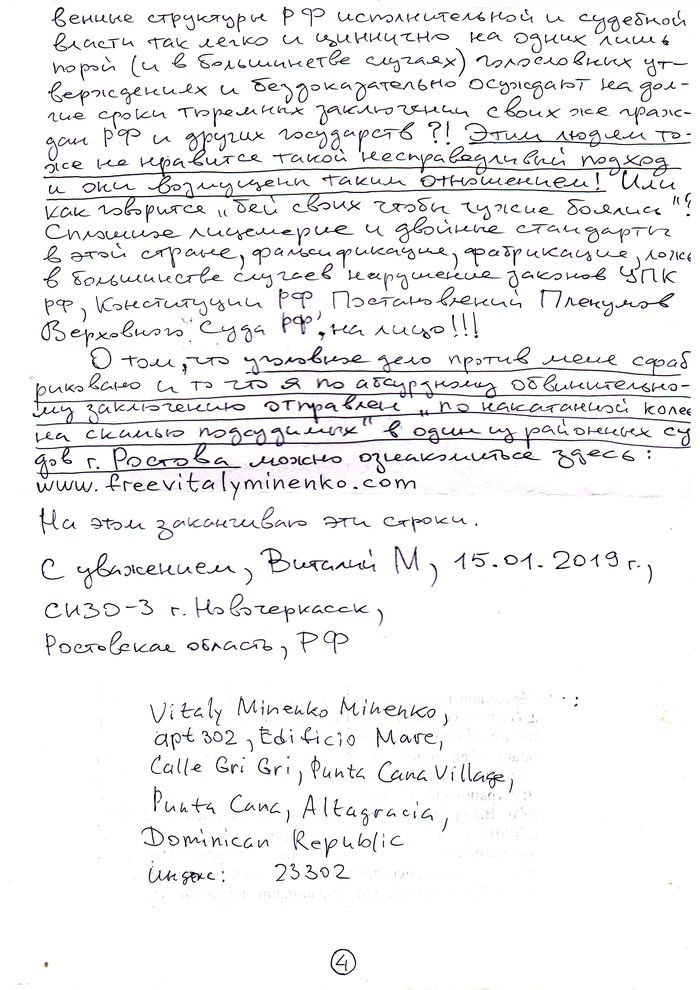 венные структуры РФ исполнительной и судебной
власти так легко и циннично на одних лишь
порой (и в большинстве случаях) голословных ут-
верждениях и бездоказательно осуждают на дол-
гие сроки тюремных заключении своих же граж-
дан РФ и других государств?! Этим людем то-
же не нравится такой несправедливый подход
и они возмущены таким отношением! Или
как говорится „бей своих чтобы чужие боялись"?
Сплошное лицемерие и двойные стандарты
в этой стране, фальсификация, фабрикация, ложь
в большинстве случаев нарушение законов УПК
РФ, Конституции РФ Постановлений Пленумов
Верховного Суда РФ, на лицо!!!
О том, что уголовное дело против меня сфаб
риковано и то что я по абсурдному обвинительно-
му заключению отправлен „по накатанной колее
на скамью подсудимых" в один из районных су
дов г. Ростова можно ознакомиться здесь:
www.freevitalyminenko.com
На этом заканчиваю эти строки.
С уважением, Виталий М, 15.01.2019г.,
СИЗО-3 г. Новочеркасск,
Ростовская область, РФ
Vitaly Minenko Minenko,
apt 302, Edificio Mare,
Calle Gri Gri, Punta Cana Village,
Punta Cana, Altagracia,
Dominican Republic
индекс: 23302
4